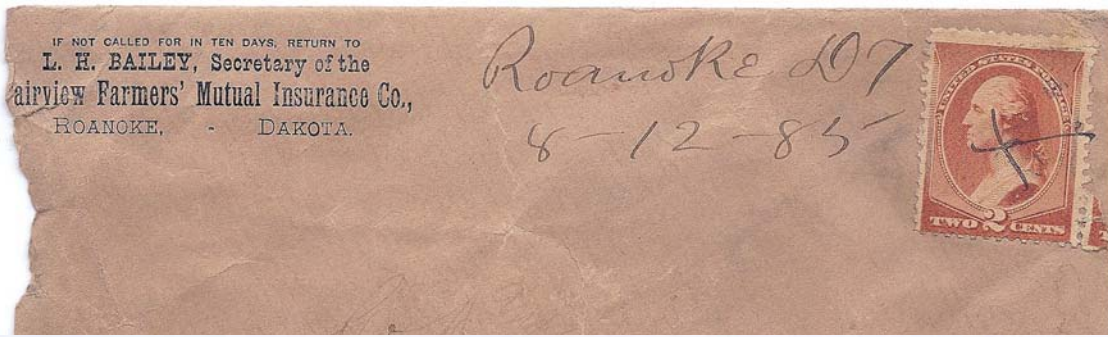 IF NOT CALLED FOR IN TEN DAYS, RETURN TO
L. H. BAILEY, Secretary of the
airview Farmers' Mutual Insurance Co.,
ROANOKE, - DAKOTA.
Roanoke DT
8-12-85
UNITED STATES POSTAGE
TWO 2 CENTS
T